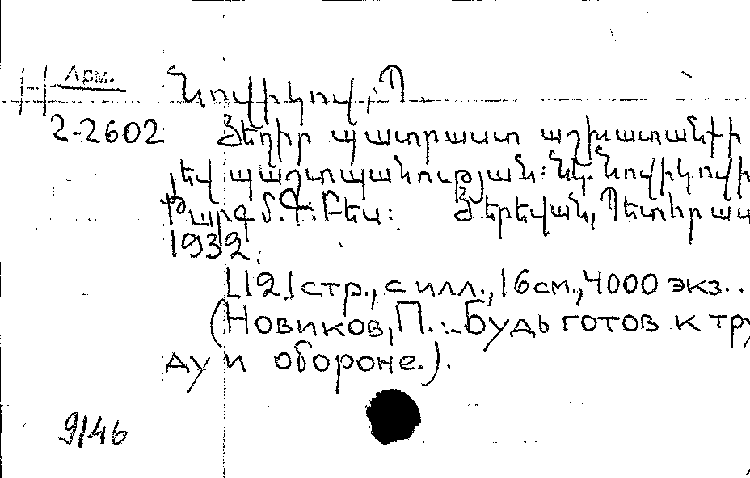 Арм.
Նովիկով, Պ
2-2602 Յեղիր պատրաստ աշխատանքի
յեվ պաշտպանության: Նկ. Նովիկովի
Թարգմ. Գ. Բես: Յերեվան, Պետհրատ
1932.
[12] стр., с илл., 16 см., 4000 экз..
(Новиков, П. :- Будь готов к тру
ду и обороне.).
9146